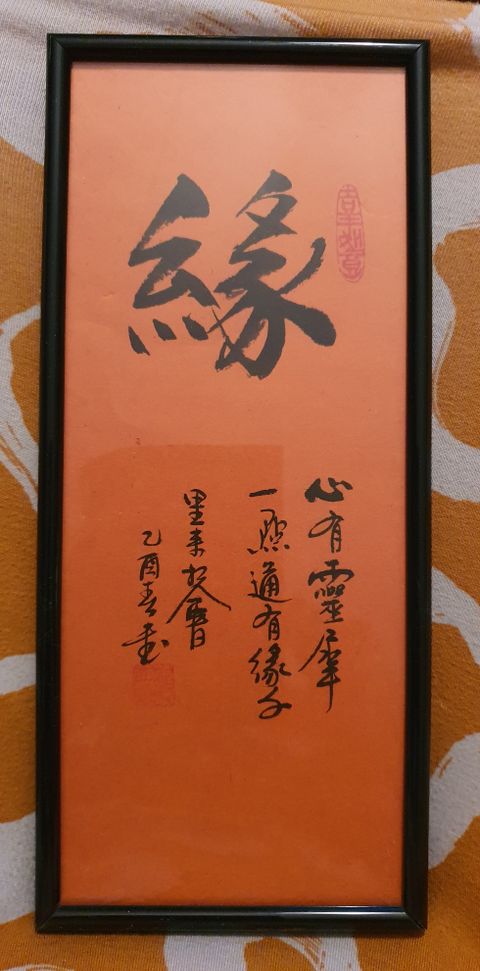 緣
心有靈犀
一點通有緣千
里來相會
乙酉春書